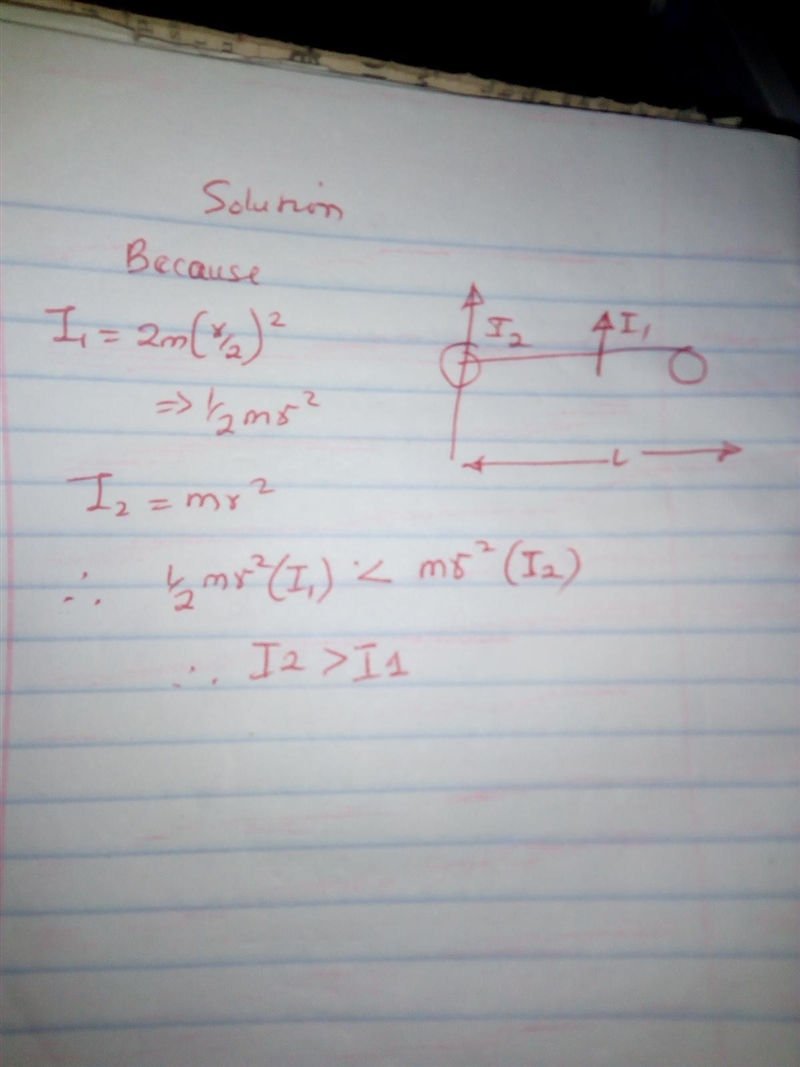 Solution
Because
I₁ = 2m(r/2)²
=> 1/2 mr²
I₂ = mr²
∴ 1/2 mr²(I₁) < mr²(I₂)
∴ I2 > I1
I₂
I₁
L